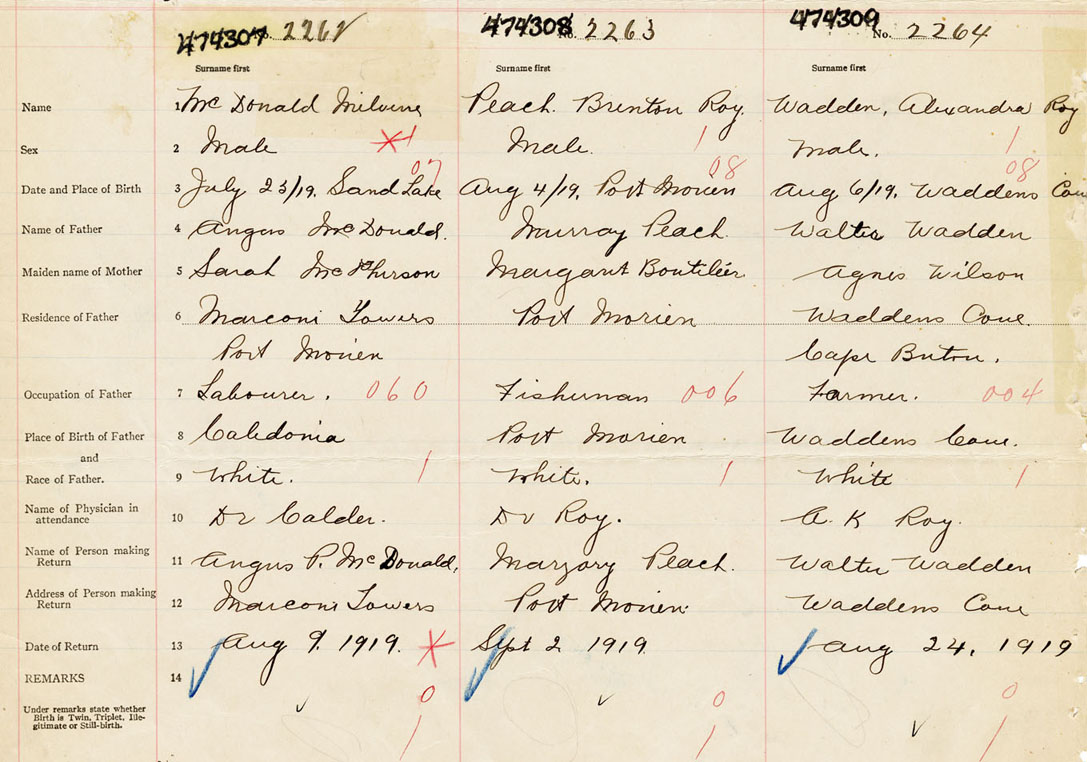 474307 No. 2262 474308 No. 2263 474309 No. 2264
Surname first Surname first Surname first
Name 1 McDonald Milvine Peach. Brenton Roy. Wadden, Alexandra Roy
Sex 2 Male X 1 Male. 1 Male. 1
07 08 08
Date and Place of Birth 3 July 23/19. Sand Lake Aug 4/19, Port Morien Aug 6/19. Waddens Cove
Name of Father 4 Angus McDonald. Murray Peach. Walter Wadden
Maiden name of Mother 5 Sarah McPherson Margaret Boutilier Agnes Wilson
Residence of Father 6 Marconi Towers Port Morien Waddens Cove.
Port Morien Cape Breton.
Occupation of Father 7 Labourer. 060 Fisherman 006 Farmer. 004
Place of Birth of Father 8 Caledonia Port Morien Waddens Cove.
and
Race of Father. 9 White. 1 White. 1 White 1
Name of Physician in
attendance 10 Dr Calder. Dr Roy. A. K Roy.
Name of Person making
Return 11 Angus P. McDonald, Marjory Peach. Walter Wadden
Address of Person making
Return 12 Marconi Towers Port Morien. Waddens Cove
Date of Return 13 Aug 9. 1919. X Sept 2 1919 Aug 24, 1919
REMARKS 14
0 0 0
Under remarks state whether
Birth is Twin, Triplet, Ille-
gitimate or Still-birth.
1 1 1